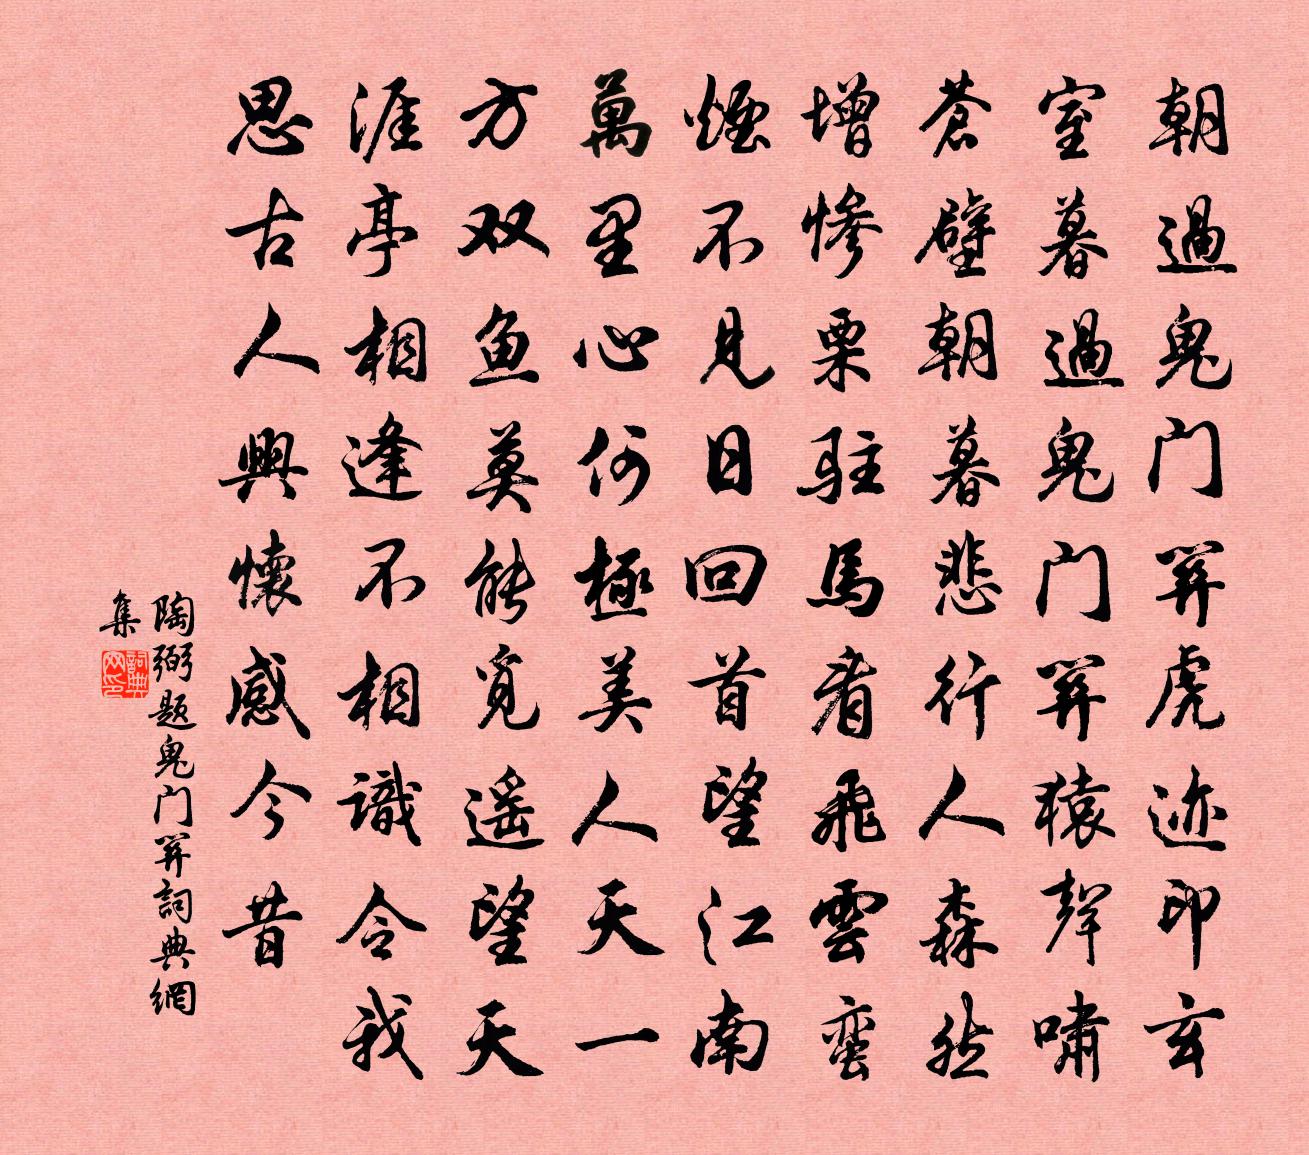 朝過鬼门關虎迹印玄
室暮過鬼门關猿聲嘯
蒼壁朝暮悲行人森然
增惨栗駐馬看飛雲蛮
煙不見日回首望江南
萬里心何極美人天一
方双鱼莫能覓遥望天
涯亭相逢不相識令我
思古人興懷感今昔
陶弼题鬼门關詞典網
集
詞典
网印